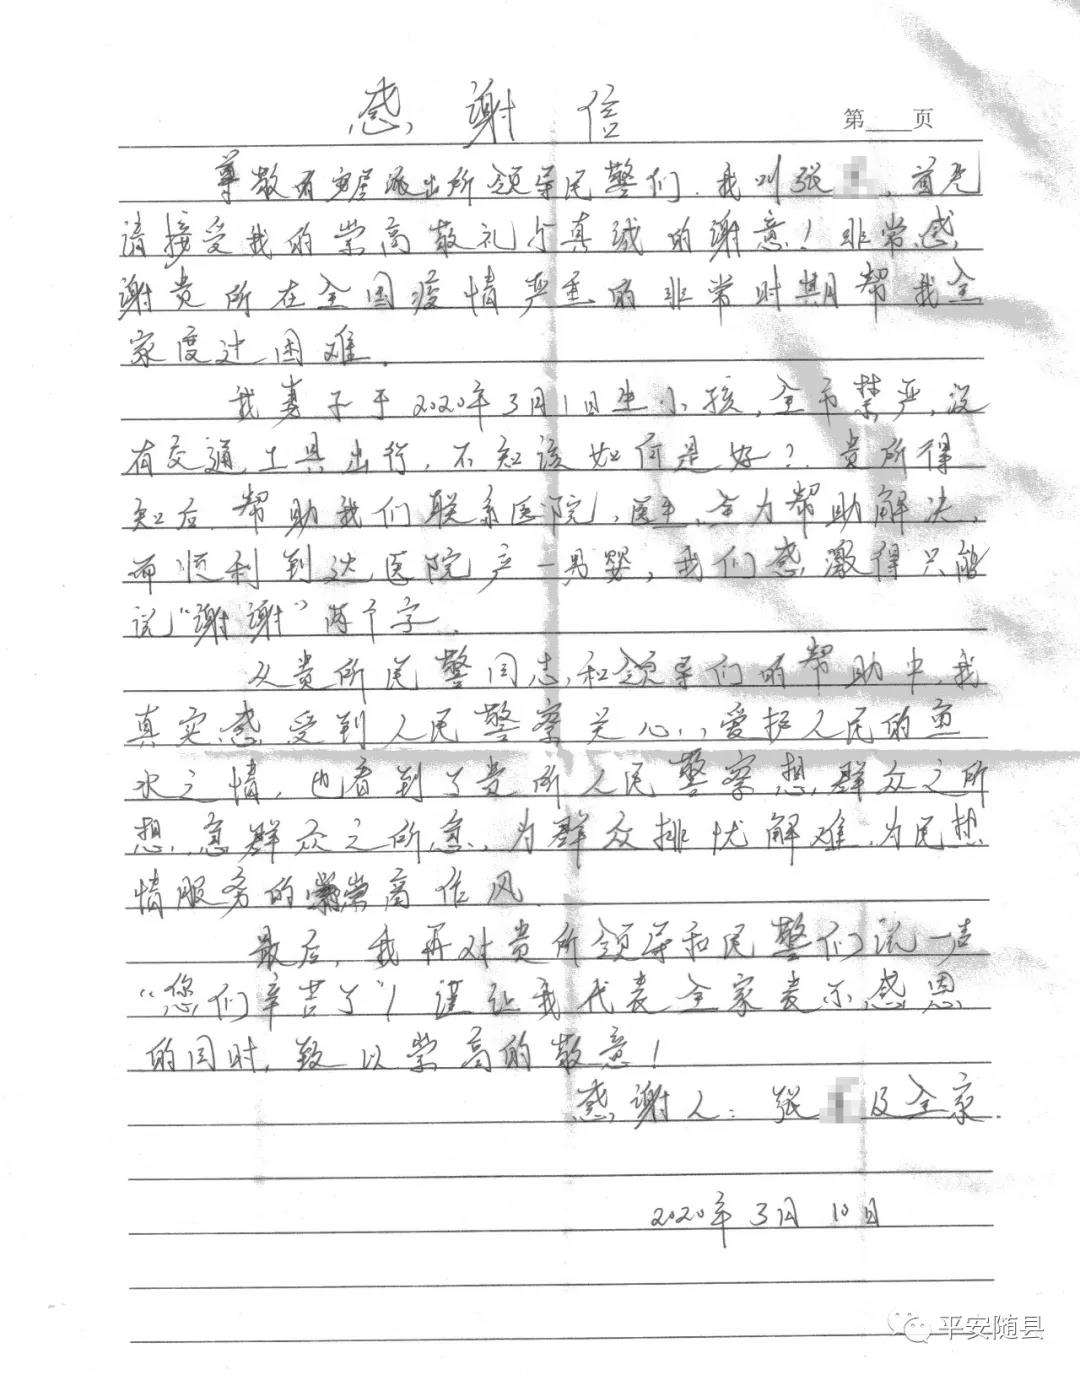 感谢信
第 页
尊敬有穷居派出所领导民警们.我叫张 ,首先
请接受我的崇高敬礼与真诚的谢意!非常感
谢贵所在全国疫情严重的非常时期帮我全
家度过困难.
我妻子于2020年3月1日生小孩,全市禁严,没
有交通工具出行,不知该如何是好?.贵所得
知后.帮助我们联系医院,医生,全力帮助解决,
而顺利到达医院产一男婴,我们感激得只能
说“谢谢”两个字.
从贵所民警同志,和领导们的帮助中,我
真实感受到人民警察关心,,爱护人民的鱼
水之情,也看到了贵所人民警察想群众之所
想,急群众之所急,为群众排忧解难,为民热
情服务的崇高作风.
最后,我再对贵所领导和民警们说一声
“您们辛苦了”!谨让我代表全家表示感恩
的同时,致以崇高的敬意!
感谢人:张 及全家.
2020年3月10日
平安随县